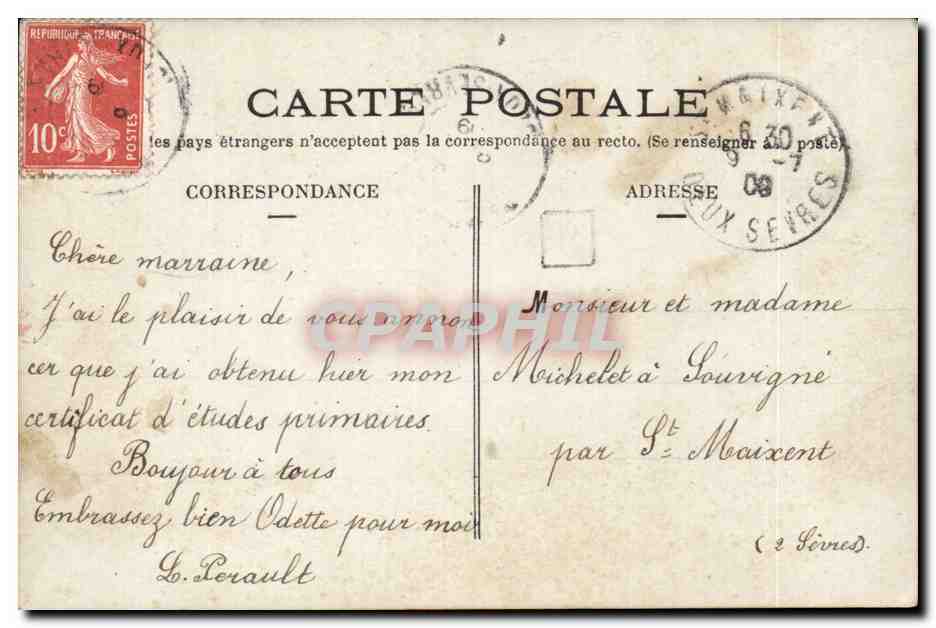 REPUBLIQUE FRANÇAISE
10c
POSTES
CARTE POSTALE
les pays étrangers n'acceptent pas la correspondance au recto. (Se renseigner à la poste)
MAIXENT
6 30
9 -7
09
DEUX SEVRES
CORRESPONDANCE
ADRESSE
Chère marraine,
J'ai le plaisir de vous annon
cer que j'ai obtenu hier mon
certificat d'études primaires.
Boujour à tous
Embrassez bien Odette pour moi
L. Perault
Monsieur et madame
Michelet à Souvigné
par St Maixent
(2 Sèvres).
CPAPHIL